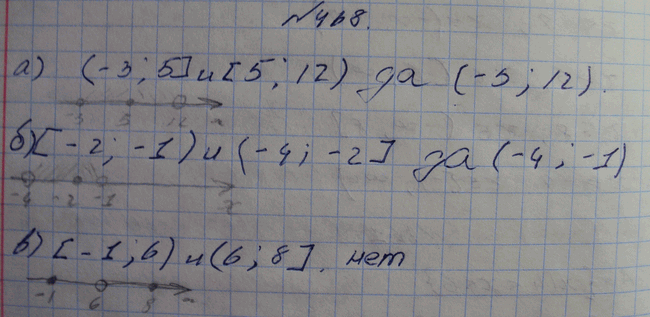 №468.
а) (-3; 5] и [5; 12) да (-3; 12).
-3 5 12 x
б) [-2; -1) и (-4; -2] да (-4; -1)
-4 -2 -1 x
в) [-1; 6) и (6; 8]. нет
-1 6 8 x